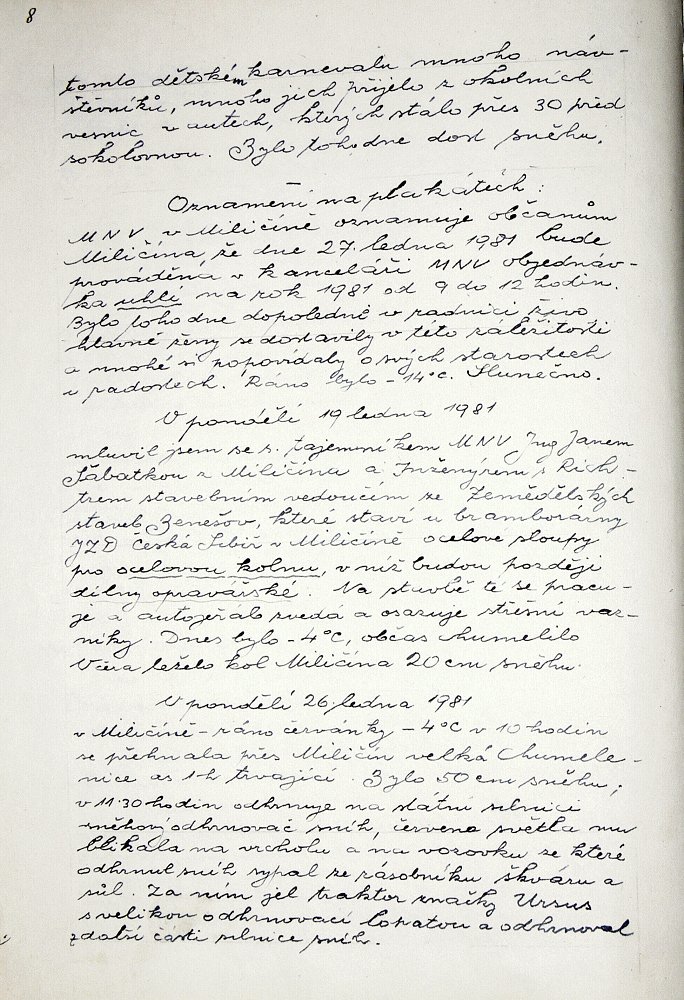 8
tomto dětském karnevalu mnoho náv-
štěvníků, mnoho jich přijelo z okolních
vesnic v autech, kterých stálo přes 30 před
sokolovnou. Bylo toho dne dost sněhu.
Oznamění na plakátech:
MNV v Miličíně oznamuje občanům
Miličína, že dne 27. ledna 1981 bude
prováděna v kanceláři MNV objednáv-
ka uhlí na rok 1981 od 9 do 12 hodin.
Bylo toho dne dopoledne v radnici živo
hlavně ženy se dostavily v této záležitosti
a mnohé si popovídaly o svých starostech
a radostech. Ráno bylo -14°C. Slunečno.
V pondělí 19 ledna 1981
mluvil jsem se s. tajemníkem MNV Ing Janem
Šabatkou z Miličína a Inženýrem s Rich-
trem stavebním vedoucím ze Zemědělských
staveb Benešov, které staví u bramborárny
JZD česká Sibiř v Miličíně ocelové sloupy
pro ocelovou kolnu, v níž budou později
dílny opravářské. Na stavbě té se pracu-
je a autojeřáb zvedá a osazuje střešní vaz-
níky. Dnes bylo -4°C, občas chumelilo
Včera leželo kol Miličína 20 cm sněhu.
V pondělí 26. ledna 1981
v Miličíně - ráno červánky -4°C v 10 hodin
se přehnala přes Miličín velká chumele-
nice as 1 h trvající. Bylo 50 cm sněhu;
v 11.30 hodin odhrnuje na státní silnici
sněhový odhrnovač sníh, červená světla mu
blikala na vrcholu a na vozovku ze které
odhrnul sníh sypal ze zásobníku škváru a
sůl. Za ním jel traktor značky Ursus
s velikou odhrnovací lopatou a odhrnoval
z další části silnice sníh.